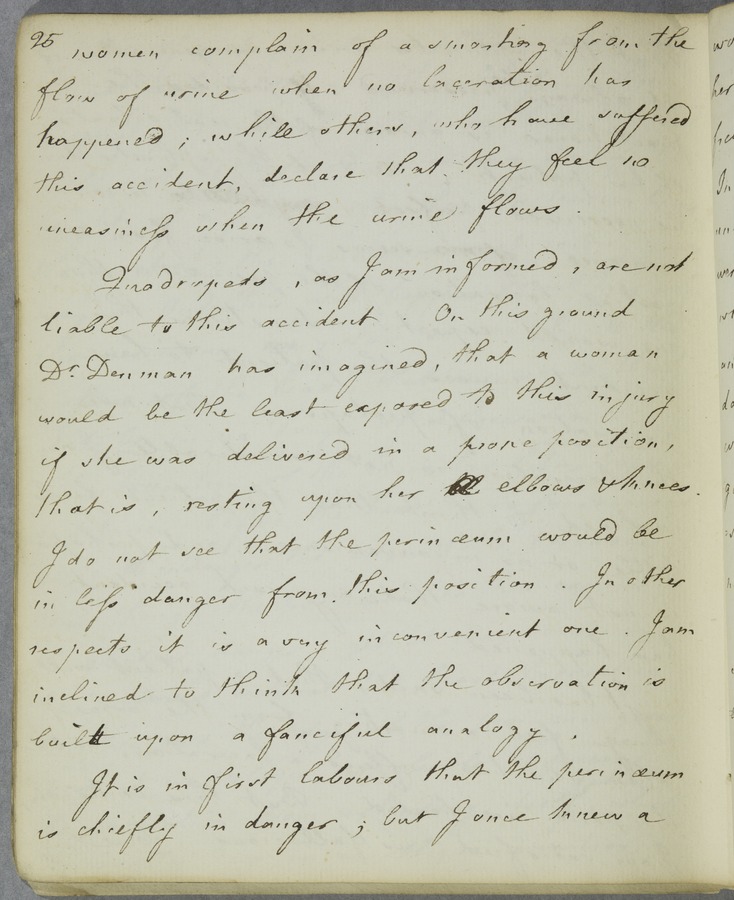 95 women complain of a smarting from the
flow of urine when no laceration has
happened ; while others, who have suffered
this accident, declare that they feel no
uneasiness when the urine flows .
Quadrupeds , as I am informed , are not
liable to this accident . On this ground
Dr. Denman has imagined, that a woman
would be the least exposed to this injury
if she was delivered in a prone position,
that is , resting upon her elbows & knees .
I do not see that the perinæum would be
in less danger from this position . In other
respects it is a very inconvenient one . I am
inclined to think that the observation is
built upon a fanciful analogy .
It is in first labours that the perinæum
is chiefly in danger ; but I once knew a